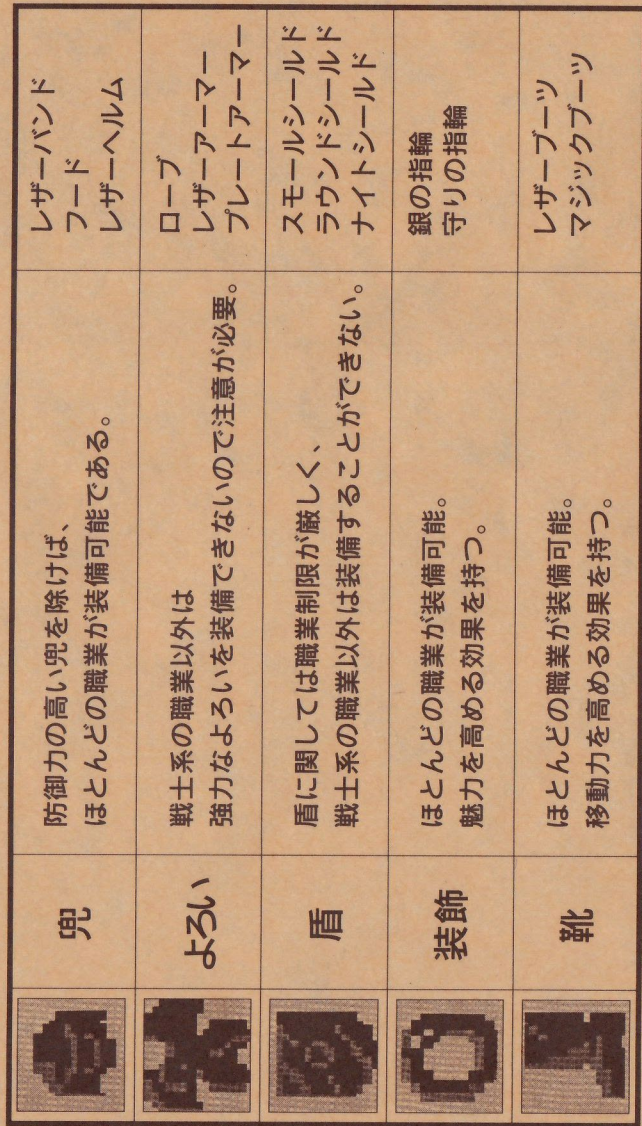 兜
防御力の高い兜を除けば、
ほとんどの職業が装備可能である。
レザーバンド
フード
レザーヘルム
よろい
戦士系の職業以外は
強力なよろいを装備できないので注意が必要。
ローブ
レザーアーマー
プレートアーマー
盾
盾に関しては職業制限が厳しく、
戦士系の職業以外は装備することができない。
スモールシールド
ラウンドシールド
ナイトシールド
装飾
ほとんどの職業が装備可能。
魅力を高める効果を持つ。
銀の指輪
守りの指輪
靴
ほとんどの職業が装備可能。
移動力を高める効果を持つ。
レザーブーツ
マジックブーツ